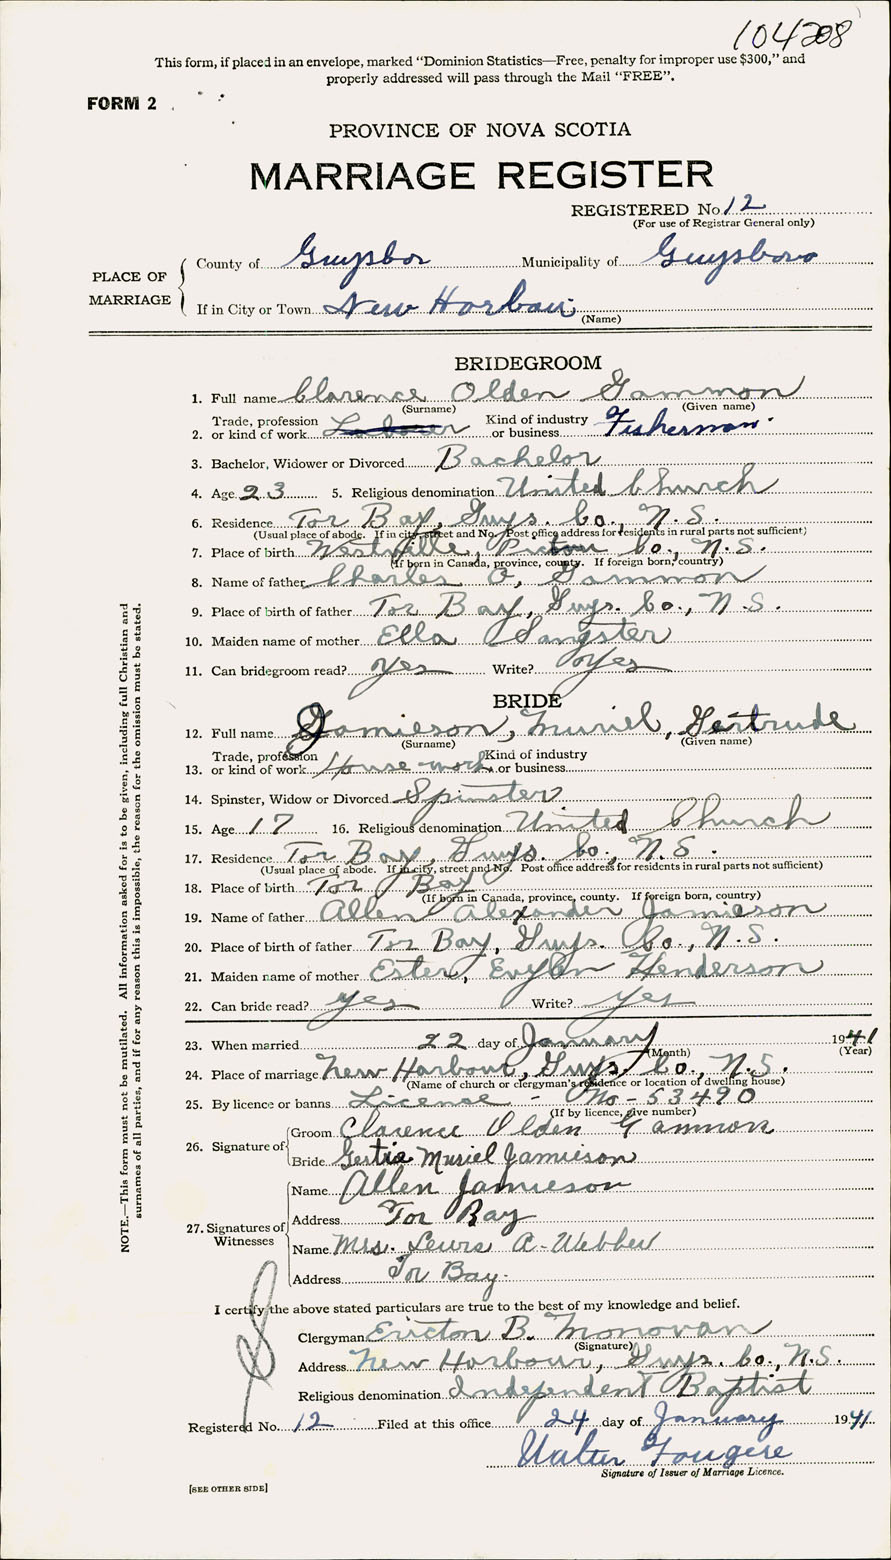 104208
This form, if placed in an envelope, marked "Dominion Statistics—Free, penalty for improper use $300," and
properly addressed will pass through the Mail "FREE".
FORM 2
PROVINCE OF NOVA SCOTIA
MARRIAGE REGISTER
REGISTERED No 12
(For use of Registrar General only)
PLACE OF MARRIAGE
County of Guysbor Municipality of Guysboro
If in City or Town New Harbour
(Name)
BRIDEGROOM
1. Full name Clarence Olden Gammon
(Surname) (Given name)
2. Trade, profession or kind of work Laborer Kind of industry or business Fisherman.
3. Bachelor, Widower or Divorced Bachelor
4. Age 23 5. Religious denomination United Church
6. Residence Tor Bay, Guys. Co., N.S.
(Usual place of abode. If in city, street and No. Post office address for residents in rural parts not sufficient)
7. Place of birth Westville, Pictou Co., N.S.
(If born in Canada, province, county. If foreign born, country)
8. Name of father Charles O. Gammon
9. Place of birth of father Tor Bay, Guys. Co., N.S.
10. Maiden name of mother Ella Sangster
11. Can bridegroom read? yes Write? yes
BRIDE
12. Full name Jamieson, Muriel, Gertrude
(Surname) (Given name)
13. Trade, profession or kind of work House-work Kind of industry or business
14. Spinster, Widow or Divorced Spinster
15. Age 17 16. Religious denomination United Church
17. Residence Tor Bay, Guys. Co., N.S.
(Usual place of abode. If in city, street and No. Post office address for residents in rural parts not sufficient)
18. Place of birth Tor Bay
(If born in Canada, province, county. If foreign born, country)
19. Name of father Allen Alexander Jamieson
20. Place of birth of father Tor Bay, Guys. Co., N.S.
21. Maiden name of mother Ester, Evylen Henderson
22. Can bride read? yes Write? yes
23. When married 22 day of January 1941
(Month) (Year)
24. Place of marriage New Harbour, Guys. Co., N.S.
(Name of church or clergyman's residence or location of dwelling house)
25. By licence or banns Licence - No-53490
(If by licence, give number)
26. Signature of
Groom Clarence Olden Gammon
Bride Gertie Muriel Jamieson
27. Signatures of Witnesses
Name Allen Jamieson
Address Tor Bay
Name Mrs. Lewis A. Webber
Address Tor Bay.
I certify the above stated particulars are true to the best of my knowledge and belief.
Clergyman B. Monovan
(Signature)
Address New Harbour, Guys. Co., N.S.
Religious denomination Independent Baptist
Registered No. 12 Filed at this office 24 day of January 1941.
Walter Fougere
Signature of Issuer of Marriage Licence.
[SEE OTHER SIDE]
NOTE.—This form must not be mutilated. All information asked for is to be given, including full Christian and
surnames of all parties, and if for any reason this is impossible, the reason for the omission must be stated.